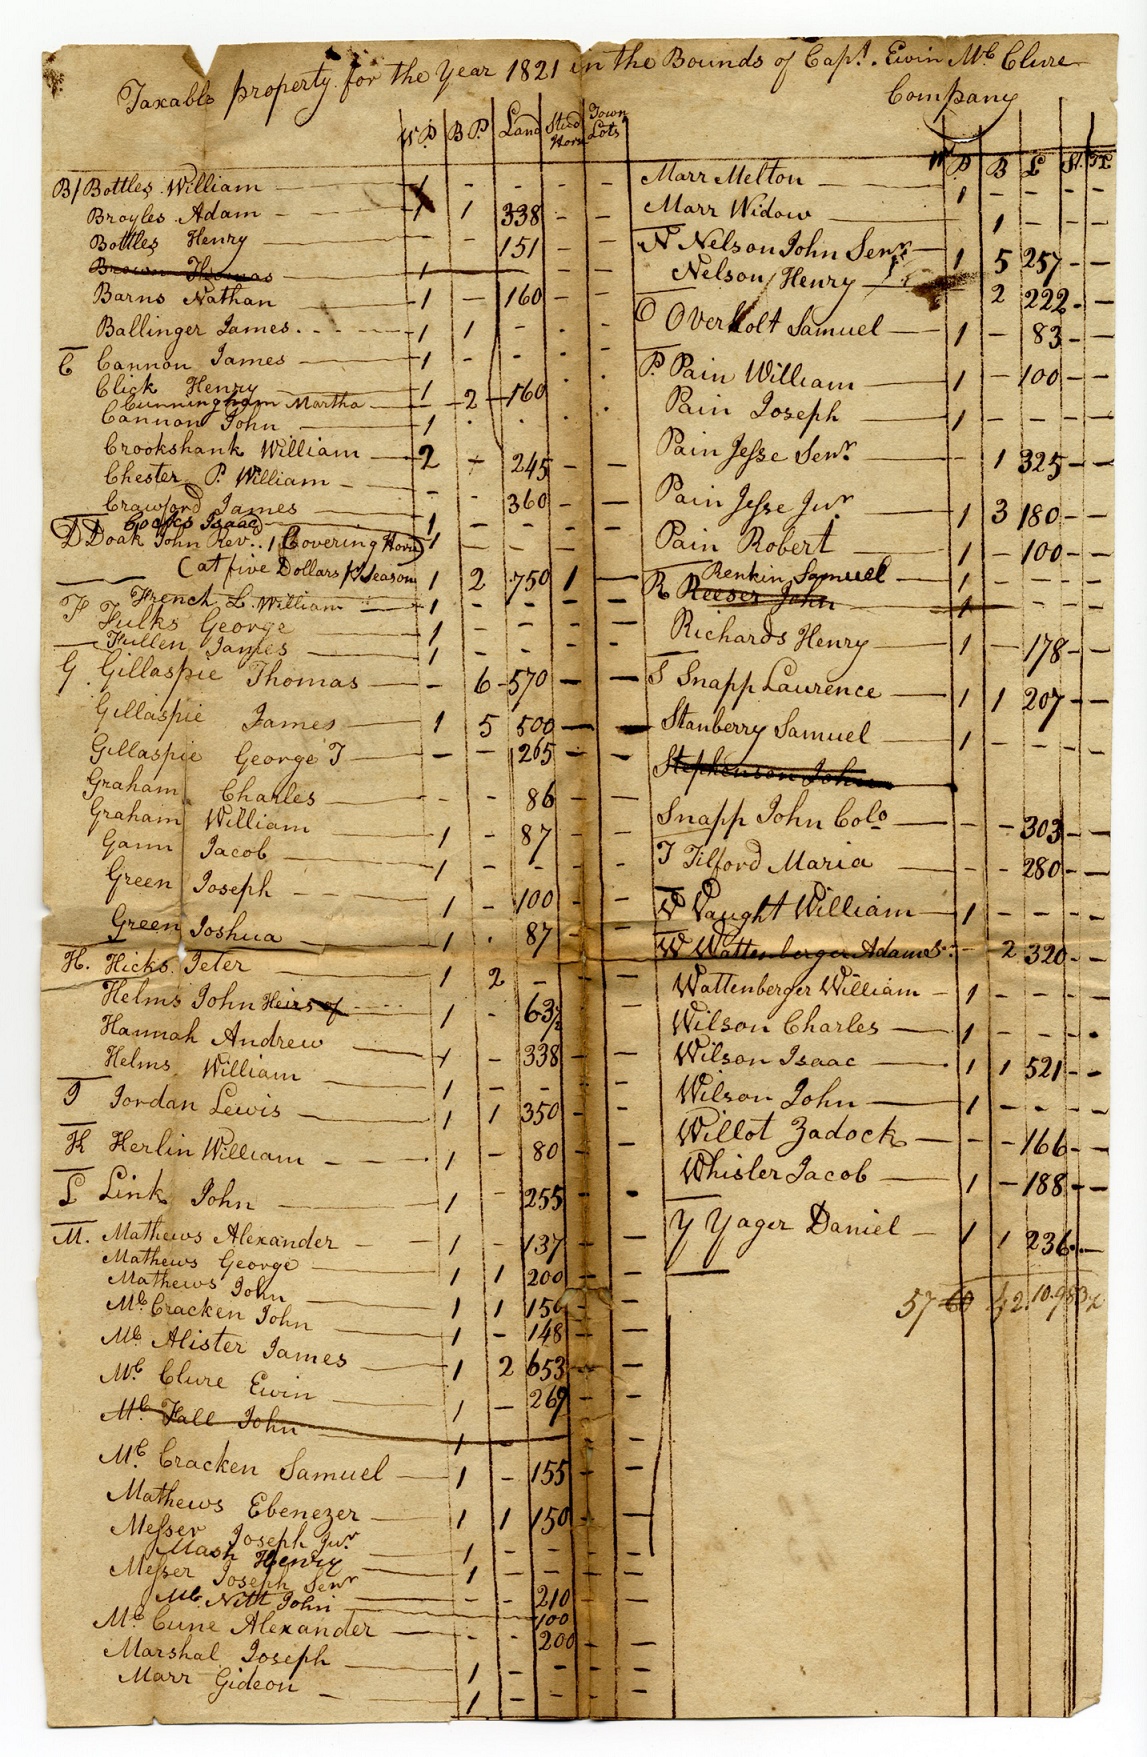 Taxable property for the Year 1821 in the Bounds of Capt. Ewin Mc Clure
Company
W P B P. Land Stud Horse Town Lots
B/ Bottles William 1 - - - -
Broyles Adam 1 1 338 - -
Bottles Henry - - 151 - -
Brown Thomas 1
Barns Nathan 1 - 160 - -
Ballinger James 1 1 - - -
C Cannon James 1 - - - -
Click Henry 1 - 160
Cunningham Martha - 2
Cannon John 1
Crookshank William 2 - 245 - -
Chester P. William - - 360 - -
Crawford James 1 - - - -
Isaac 1 - - - -
D Doak John Revd. 1 Covering Horse
(at five Dollars pr Season 1 2 750 1 -
French L. William 1 - - - -
F Fulks George 1 - - - -
Fullen James 1 - - - -
G. Gillaspie Thomas - 6 570 - -
Gillaspie James 1 5 500 - -
Gillaspie George T - - 265 - -
Graham Charles - - 86 - -
Graham William 1 - 87 - -
Gann Jacob 1 - - - -
Green Joseph 1 - 100 - -
Green Joshua 1 - 87 - -
H. Hicks Peter 1 2 - - -
Helms John Heirs of 1 - 63½ - -
Hannah Andrew 1 - 338 - -
Helms William 1 - - - -
J Jordan Lewis 1 1 350 - -
K Kerlin William 1 - 80 - -
L Link John 1 - 255 - -
M. Mathews Alexander 1 - 137 - -
Mathews George 1 1 200 - -
Mathews John 1 1 156 - -
Mc Cracken John 1 - 148 - -
Mc Alister James 1 2 653 - -
Mc Clure Ewin 1 - 269 - -
Mc Fall John 1 -
Mc Cracken Samuel 1 - 155 - -
Mathews Ebenezer 1 1 150 - -
Messer Joseph Junr 1 - - - -
Mash Henry 1 - - - -
Messer Joseph Senr - - 210 - -
Mc Nitt John 100
Mc Cune Alexander - - 200 - -
Marshal Joseph 1 - - - -
Marr Gideon 1 - - - -
W P B L St. TL
Marr Melton 1 - - - -
Marr Widow - 1 - - -
N Nelson John Senr 1 5 257 - -
Nelson Henry - 2 222 - -
O Overholt Samuel 1 - 83 - -
P. Pain William 1 - 100 - -
Pain Joseph 1 - - - -
Pain Jesse Senr. - 1 325 - -
Pain Jesse Junr 1 3 180 - -
Pain Robert 1 - 100 - -
Renkin Samuel 1 - - - -
R Reeser John 1 - - - -
Richards Henry 1 - 178 - -
S Snapp Laurence 1 1 207 - -
Stanberry Samuel 1 - - - -
Stephenson John
Snapp John Colo - - 303 - -
T Tilford Maria - - 280 - -
V Vaught William 1 - - - -
W Wattenberger Adam - 2 320 - -
Wattenberger William 1 - - - -
Wilson Charles 1 - - - -
Wilson Isaac 1 1 521 - -
Wilson John 1 - - - -
Willot Zadock - - 166 - -
Whisler Jacob 1 - 188 - -
Y Yager Daniel 1 1 236 - -
57 60 42